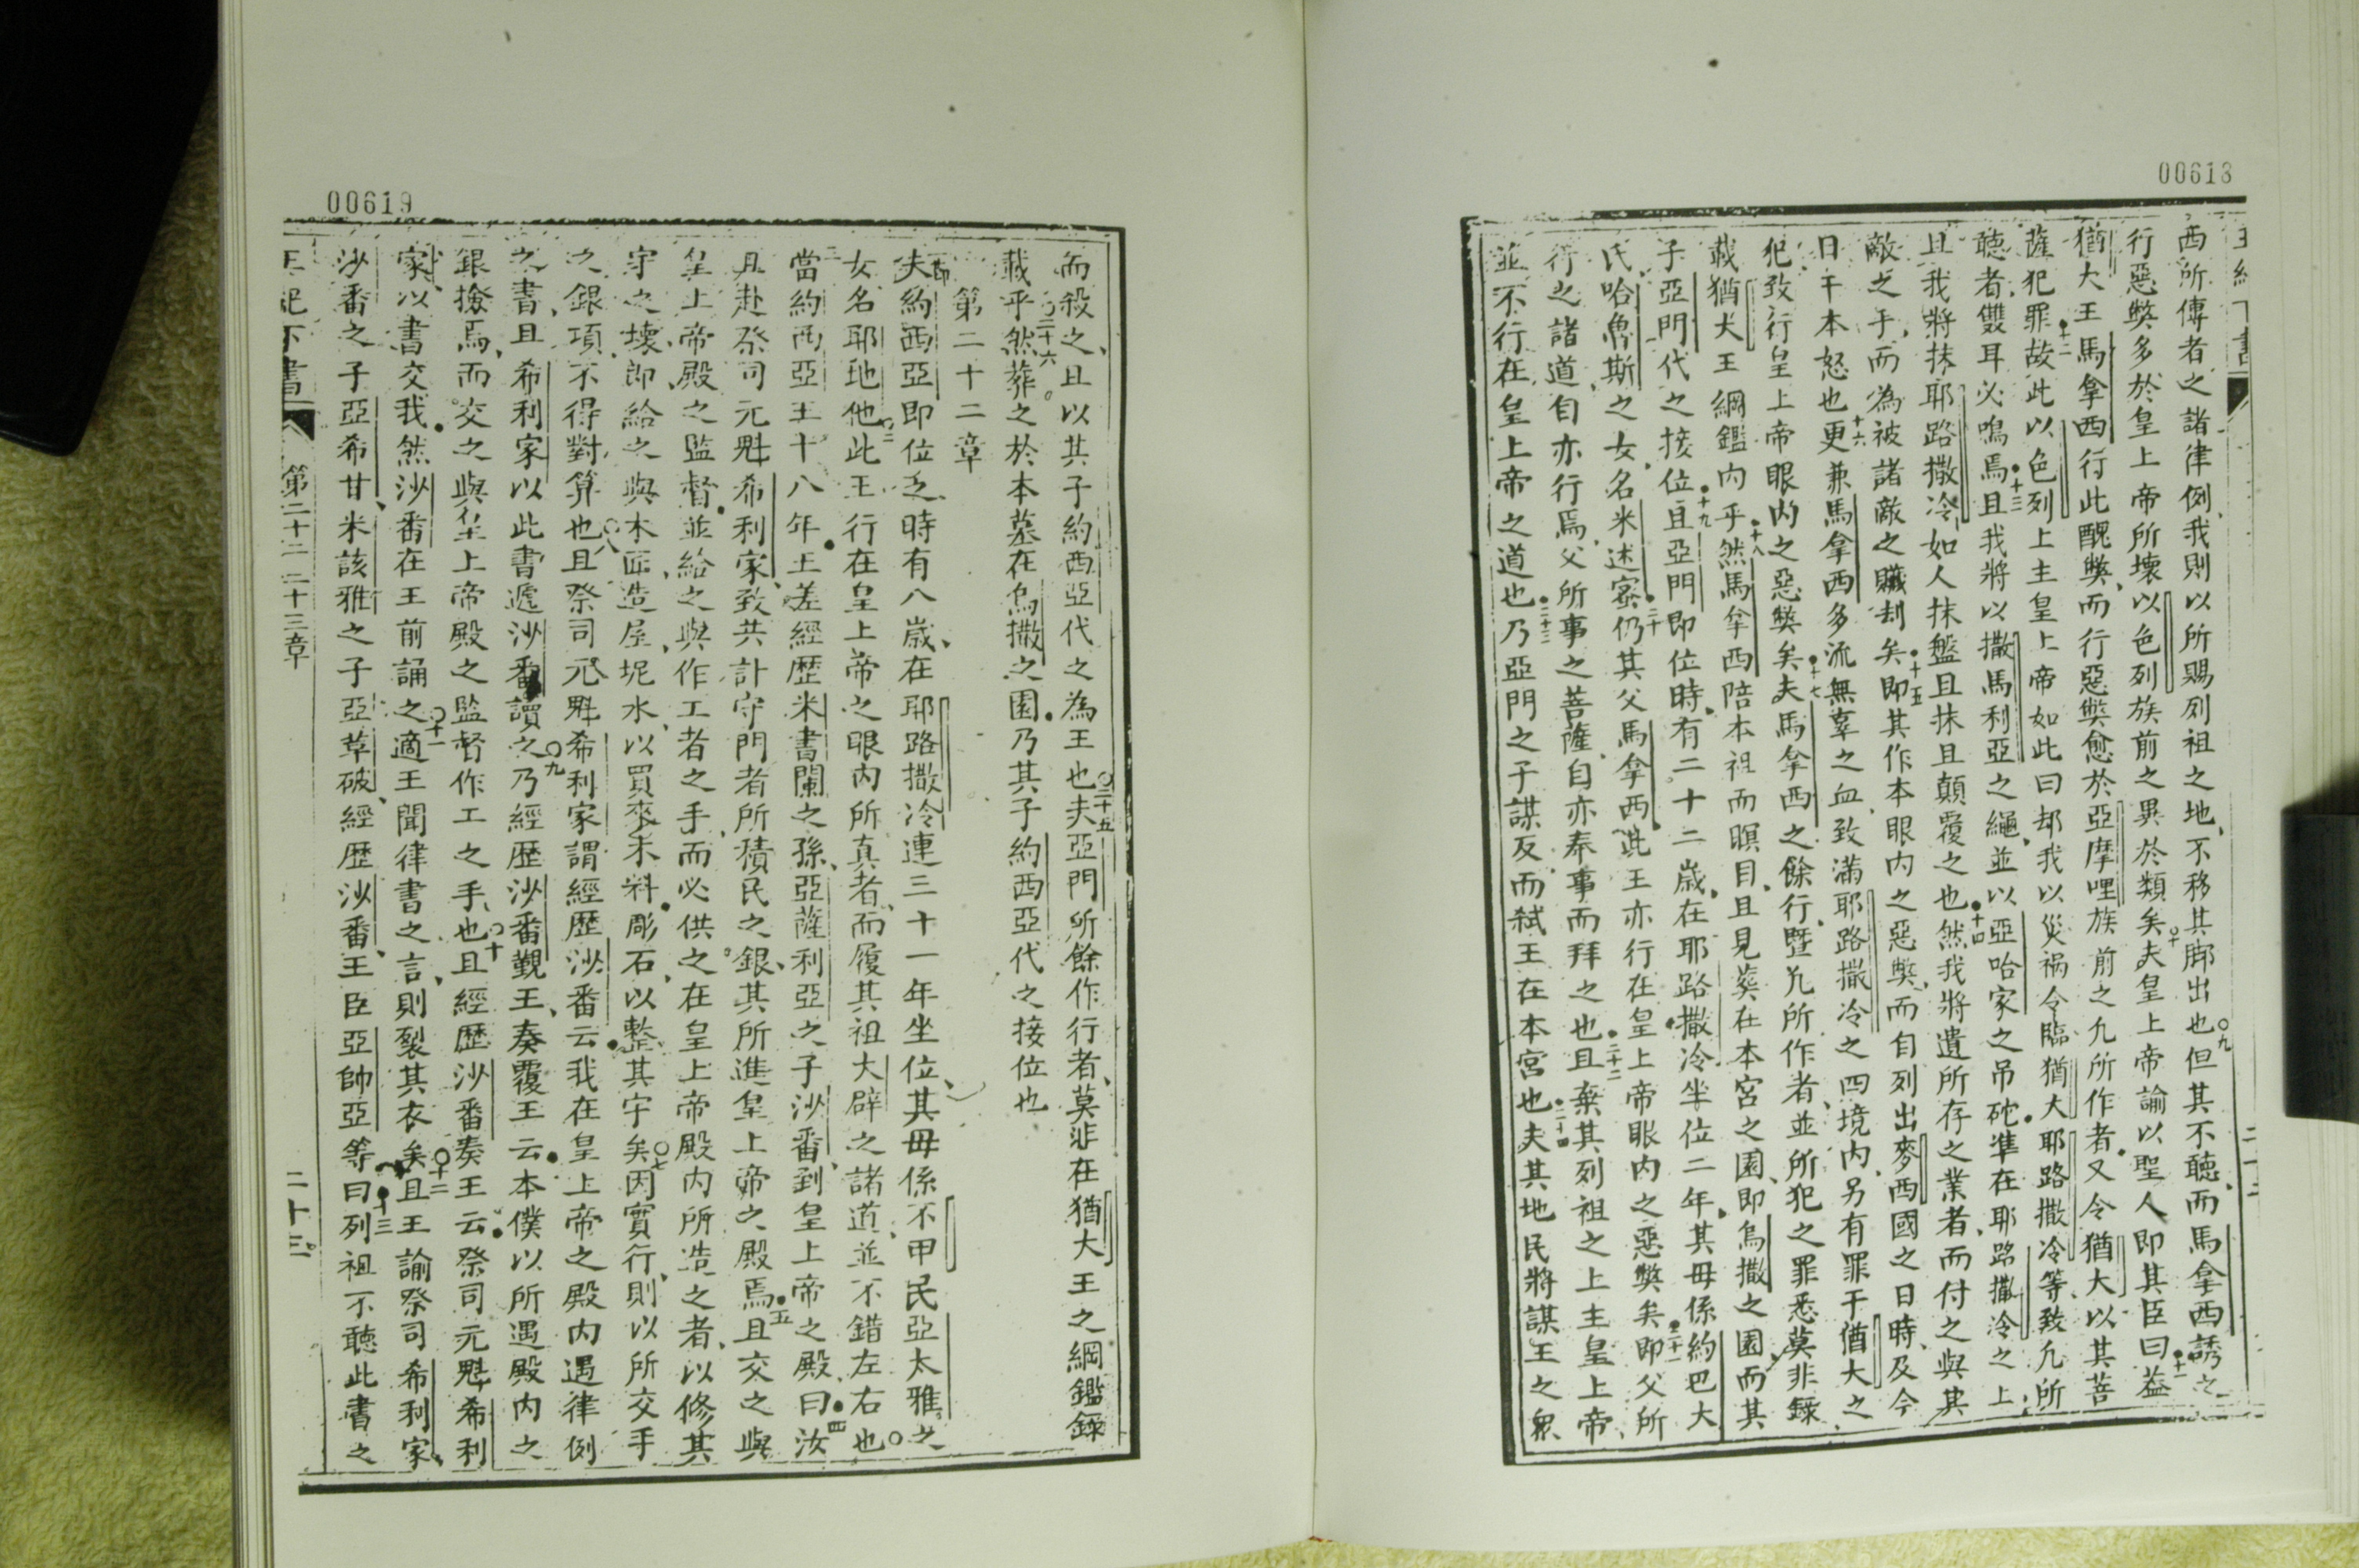 00618
西所傳者之諸律例我則以所賜列祖之地、不移其脚出也○九但其不聽、而馬拿西誘之
行惡獘多於皇上帝所壞以色列族前之異於類矣○十夫皇上帝諭以聖人即其臣曰十一益
猶大王馬拿西行此醜獘、而行惡獘愈於亞摩哩族前之凢所作者、又令猶大以其菩
薩犯罪十二故此以色列上主皇上帝如此曰却我以災禍令臨猶大耶路撒冷等、致凢所
聽者、雙耳必鳴焉十三且我將以撒馬利亞之繩、並以亞哈家之吊砣、準在耶路撒冷之上、
且我將抹耶路撒冷、如人抹盤且抹且顛覆之也十四然我將遺所存之業者、而付之與其
敵之手、而為被諸敵之贜刦矣十五即其作本眼内之惡獘、而自列出麥西國之日時、及今
日干本怒也十六更兼馬拿西多流無辜之血、致滿耶路撒冷之四境内、另有罪于猶大之
犯、致行皇上帝眼内之惡獘矣十七夫馬拿西之餘行、暨凢所作者、並所犯之罪悉莫非錄
載猶大王綱鑑内乎十八然馬拿西陪本祖而暝目、且見葬在本宮之園、即烏撒之園、而其
子亞門代之接位十九且亞門即位時、有二十二歲、在耶路撒冷坐位二年、其母係約巴大
氏、哈魯斯之女、名米述密二十仍其父馬拿西、此王亦行在皇上帝眼内之惡獘矣二十一即父所
行之諸道、自亦行焉、父所事之菩薩、自亦奉事而拜之也二十二且棄其列祖之上主皇上帝、
並不行在皇上帝之道也二十三乃亞門之子謀反、而弑王在本宮也二十四夫其地民將謀王之衆
00619
而殺之、且以其子約西亞代之為王也○二十五夫亞門所餘作行者、莫非在猶大王之綱鑑錄
載乎○二十六然葬之於本墓在烏撒之園、乃其子約西亞代之接位也
第二十二章
夫約西亞即位之時有八歲、在耶路撒冷連三十一年坐位、其母係不甲民亞太雅之
女名耶地他○二此王行在皇上帝之眼内所真者、而履其祖大辟之諸道、並不錯左右也○
當約西亞王十八年王差經歷米書闌之孫、亞薩利亞之子沙番、到皇上帝之殿、曰四汝
且赴祭司元魁希利家、致共計守門者所積民之銀、其所進皇上帝之殿焉五且交之與
皇上帝殿之監督、並給之與作工者之手、而必供之在皇上帝殿内所造之者、以修其
宇之壞、即給之與木匠、造屋、坭水、以買來木料、彫石、以整其宇矣○七因實行、則以所交手
之銀項、不得對算也○八且祭司元魁希利家謂經歷沙番云、我在皇上帝之殿内遇律例
之書、且希利家以此書遞沙番讀之○九乃經歷沙番覲王、奏覆王云、本僕以所遇殿内之
銀撿焉、而交之與皇上帝殿之監督作工之手也○十且經歷沙番奏王云、祭司元魁希利
家、以書交我、然沙番在王前誦之○十一適王聞律書之言、則裂其衣矣○十二且王諭祭司希利家、
沙番之子亞希甘、米該雅之子亞革破、經歷沙番、王臣亞帥亞等曰十三列祖不聽此書之
王紀下書 第二十二 二十三章 二十三